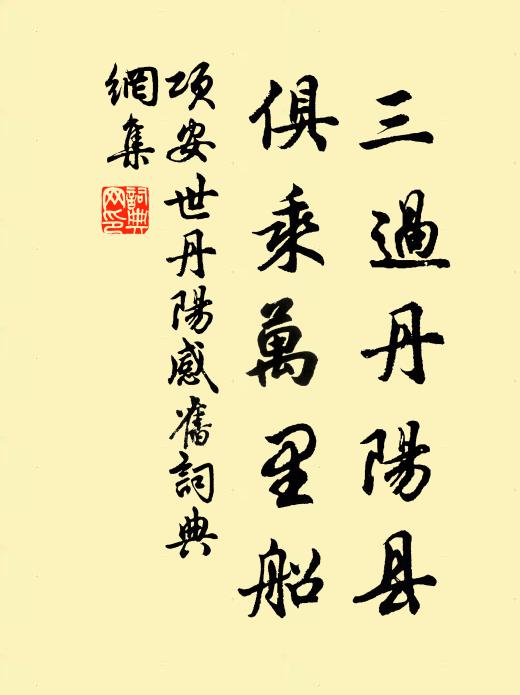 三過丹陽县
俱乘萬里船
項安世丹陽感舊詞典
網集
詞典
网印